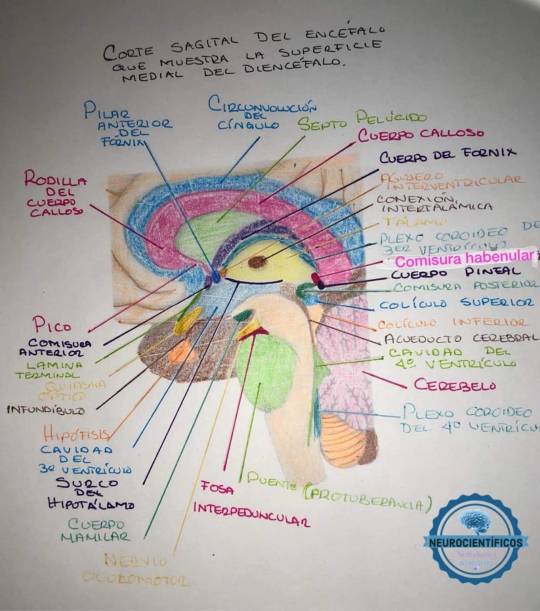 CORTE SAGITAL DEL ENCÉFALO
QUE MUESTRA LA SUPERFICIE
MEDIAL DEL DIENCÉFALO.
PILAR
ANTERIOR
DEL
FÓRNIX
CIRCUNVOLUCIÓN
DEL
CÍNGULO
SEPTO PELÚCIDO
CUERPO CALLOSO
CUERPO DEL FORNIX
AGUJERO
INTERVENTRICULAR
CONEXIÓN
INTERTALÁMICA
TÁLAMO
PLEXO COROIDEO DE
3ER VENTRÍCULO
Comisura habenular
CUERPO PINEAL
COMISURA POSTERIOR
COLÍCULO SUPERIOR
COLÍCULO INFERIOR
ACUEDUCTO CEREBRAL
CAVIDAD DEL
4º VENTRÍCULO
CEREBELO
PLEXO COROIDEO
DEL 4º VENTRÍCU
RODILLA
DEL
CUERPO
CALLOSO
PICO
COMISURA
ANTERIOR
LAMINA
TERMINAL
QUIASMA
ÓPTICO
INFUNDÍBULO
HIPÓFISIS
CAVIDAD
DEL
3º VENTRÍCULO
SURCO
DEL
HIPOTÁLAMO
CUERPO
MAMILAR
NERVIO
OCULOMOTOR
FOSA
INTERPEDUNCULAR
PUENTE (PROTUBERANCIA)
NEUROCIENTÍFICOS